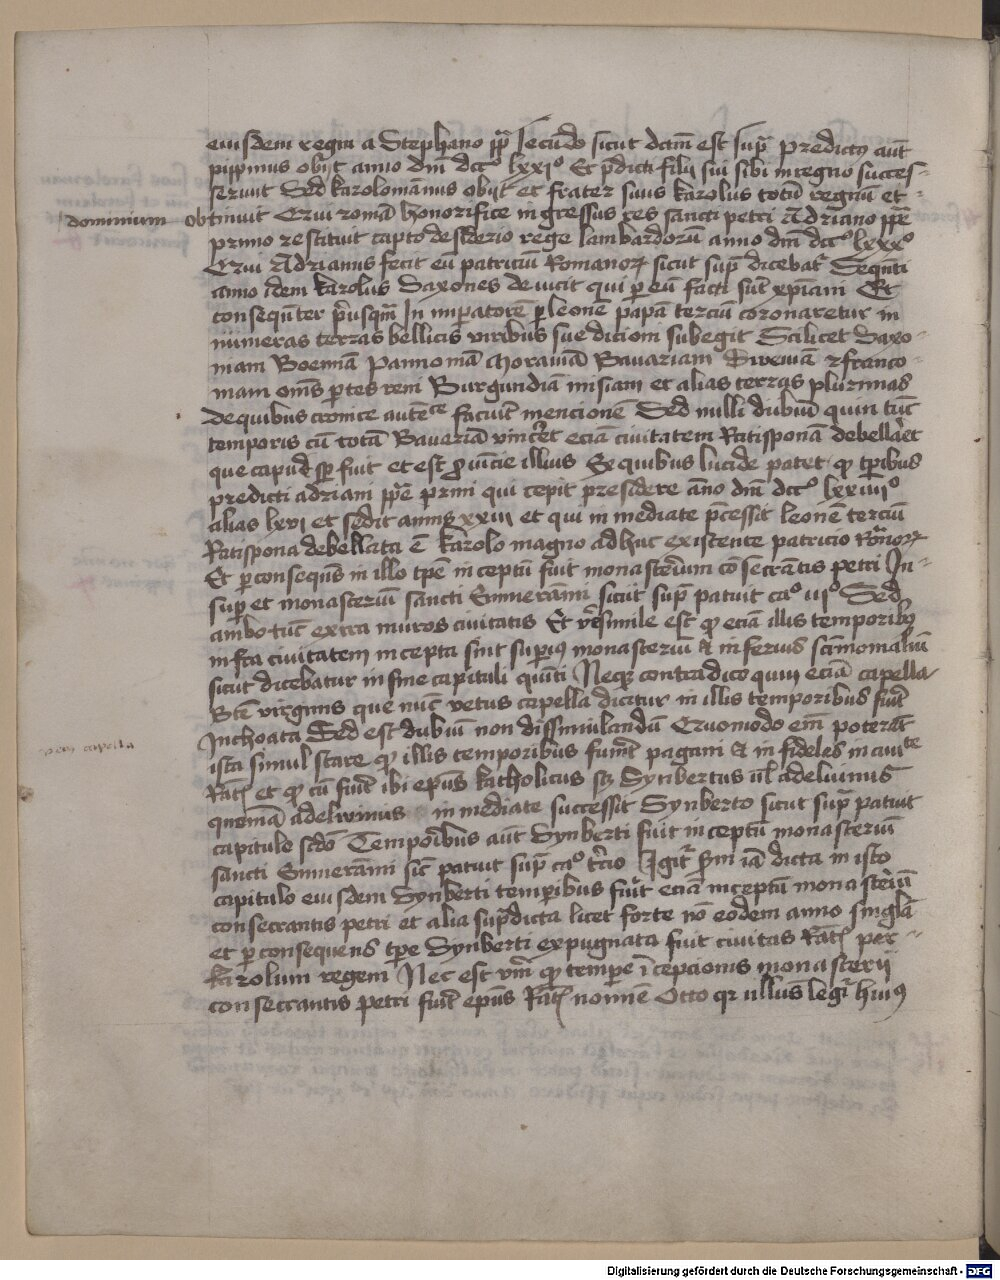 eiusdem regni a Stephano pp̄ secūdo sicut dctm̄ est sup̄ predictꝯ aūt
pippinus obijt anno dnī dccͦ lxxiͦ Et p̄dicti filij sui sibi in regno succes-
serunt Sed karolomannus obijt et frater suus karolus totū regnū et
dominium obtinuit Qui romā honorifice ingressus res sancti petri Adriano pp̄e
primo restituit capto desiderio rege lambardorū anno dnī dccͦ lxxͦ
Qui Adrianus fecit eū patriciū Romanoꝝ sicut sup̄ dicebat̄ Seqn̄ti
anno idem karolus Saxones deuicit qui ꝑ eū facti sūt xp̄iani Et
consequn̄ter p̄usqm̄ In imꝑatorē ꝑ leonē papā terciū coronaretur in
numeras terras bellicis viribus sue dicioni subegit Scilicet Saxo-
niam Boemiā Pannoniā Morauiā Bauariam Sweuiā ⁊ franco
niam om̄s ꝑtes reni Burgundiā misiam et alias terras plurimas
de quibus cronice autē͞ce faciūt mencionē Sed nulli dubiū quin tūc
temporis cū totā Bauariā vinc̄et eciā ciuitatem Ratisponā debellaret
que capud sp̄ fuit et est ꝓuincie illius Ex quibus lucide patet qꝫ tꝑibus
predicti adriani pp̄e primi qui cepit presidere āno dnī dccͦ lxxiiijͦ
alias lxvj et sedit annis xxiii et qui inmediate p̄cessit leonē terciū
Ratispona debellata ē karolo magno adhuc existente patricio Rōnoꝝ
Et ꝑ consequēs in illo tꝑe inceptū fuit monasteriūm cōsecrantis petri In-
suꝑ et monasteriū sancti Emmerāmi sicut sup̄ patuit caͦ iijͦ Sed
ambo tūc extra muros ciuitatis Et v̄isimile est qꝫ eciā illis temporibꝯ
infra ciuitatem incepta sint suꝑiꝯ monasteriū & inferius sc̄imonialiū
sicut dicebatur in fine capituli quīti Neqꝫ contradico quin eciā capella
Btē virginis que nūc vetus capella dicitur in illis temporibus fuit
Inchoata Sed est dubiū non dissimulandū Quomodo em̄ poterāt
ista simul stare qꝫ illis temporibus fuerīt pagani & infideles in ciuite
Rat̄ et qꝫ cū fuit ibi ep̄us katholicus scꝫ Synbertus ul̄ adelwinus
quoniā adelwinus inmediate successit Synberto sicut sup̄ patuit
capitulo scdō Temporibus aūt Synberti fuit inceptū monasteriū
sancti Emmerāmi sic̄ patuit sup̄ caͦ t̄cio Igit̄ scdm iā dicta in isto
capitulo eiusdem Synberti temꝑibus fuit eciā inceptū monasteriū
consecrantis petri et alia sup̄dicta licet forte nō eodem anno singlā
et ꝑ consequens tꝑe Synberti expugnata fuit ciuitas Rat̄ per-
karolum regem Nec est vm̄ qꝫ tempe īcepcionis monasterij
consecrantis petri fuit ep̄us Rat̄ nomine Otto qꝛ nullus legit̄ huiꝯ
Digitalisierung gefördert durch die Deutsche Forschungsgemeinschaft - DFG